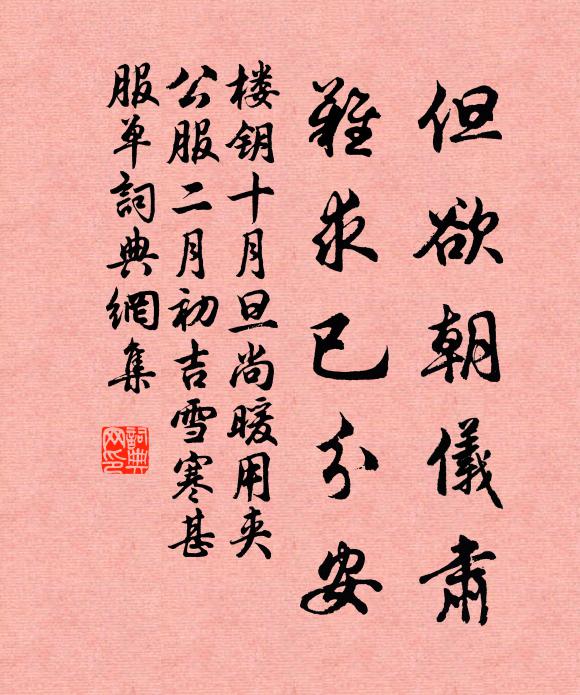 但欲朝儀肅
難求已分安
楼钥十月旦尚暖用夹
公服二月初吉雪寒甚
服单詞典網集
詞典
网印